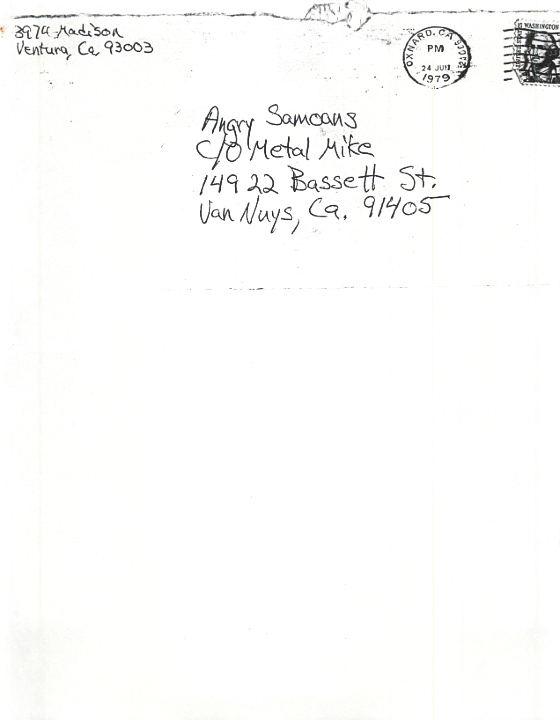 3974 Madison
Ventura, Ca 93003
OXNARD, CA 930
PM
24 JUN
1979
WASHINGTON
Angry Samoans
C/O Metal Mike
14922 Bassett St.
Van Nuys, Ca. 91405